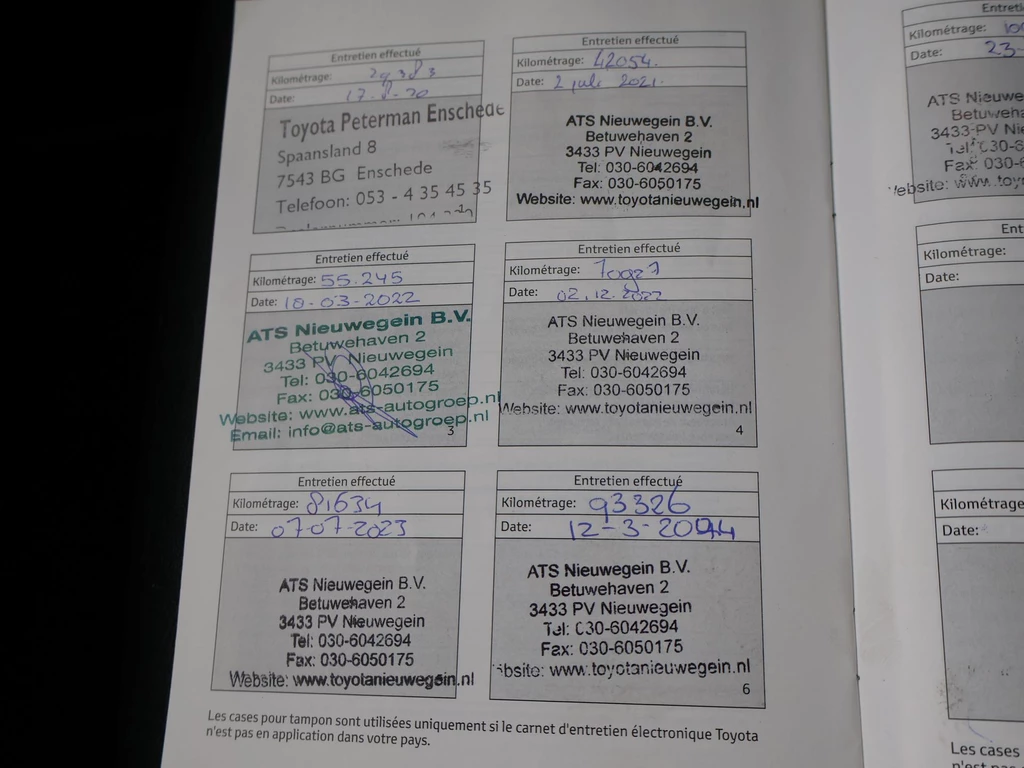 Entretien effectué
Kilométrage: 29383
Date: 17-8-20
Toyota Peterman Enschede
Spaansland 8
7543 BG Enschede
Telefoon: 053 - 4 35 45 35
Entretien effectué
Kilométrage: 42054.
Date: 2 juli 2021.
ATS Nieuwegein B.V.
Betuwehaven 2
3433 PV Nieuwegein
Tel: 030-6042694
Fax: 030-6050175
Website: www.toyotanieuwegein.nl
Entretien effectué
Kilométrage: 55.245
Date: 18-03-2022
ATS Nieuwegein B.V.
Betuwehaven 2
3433 PV Nieuwegein
Tel: 030-6042694
Fax: 030-6050175
Website: www.ats-autogroep.nl
Email: info@ats-autogroep.nl
3
Entretien effectué
Kilométrage:
Date: 02.12.2022
ATS Nieuwegein B.V.
Betuwehaven 2
3433 PV Nieuwegein
Tel: 030-6042694
Fax: 030-6050175
Website: www.toyotanieuwegein.nl
4
Entretien effectué
Kilométrage: 81634
Date: 07-07-2023
ATS Nieuwegein B.V.
Betuwehaven 2
3433 PV Nieuwegein
Tel: 030-6042694
Fax: 030-6050175
Website: www.toyotanieuwegein.nl
Entretien effectué
Kilométrage: 93326
Date: 12-3-2024
ATS Nieuwegein B.V.
Betuwehaven 2
3433 PV Nieuwegein
Tel: 030-6042694
Fax: 030-6050175
bsite: www.toyotanieuwegein.nl
6
Les cases pour tampon sont utilisées uniquement si le carnet d'entretien électronique Toyota
n'est pas en application dans votre pays.
Entreti
Kilométrage: 10
Date: 23-
ATS Nieuwe
Betuweha
3433-PV Ni
Tel: 030-6
Fax: 030-6
ebsite: www.toy
Ent
Kilométrage:
Date:
Kilométrage
Date:
Les cases
n'est pas